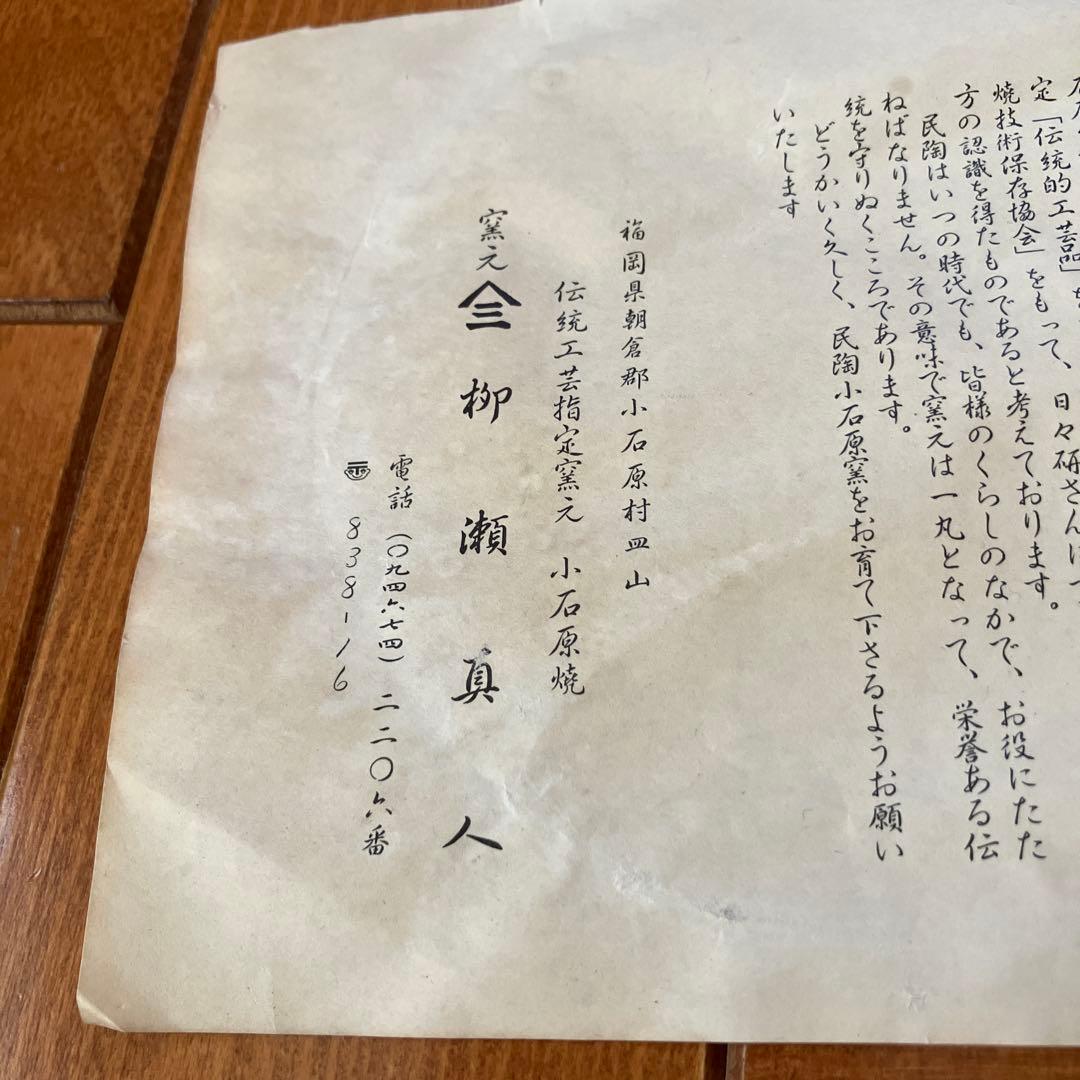 定「伝統的工芸品」
焼技術保存協会」をもって、日々研さん
方の認識を得たものであると考えております。
民陶はいつの時代でも、皆様のくらしのなかで、お役にたた
ねばなりません。その意味で窯元は一丸となって、栄誉ある伝
統を守りぬくこころであります。
どうかいく久しく、民陶小石原窯をお育て下さるようお願い
いたします
福岡県朝倉郡小石原村皿山
伝統工芸指定窯元 小石原焼
窯元 三 柳瀬真人
電話(〇九四六七四)二二〇六番
〠 838-16